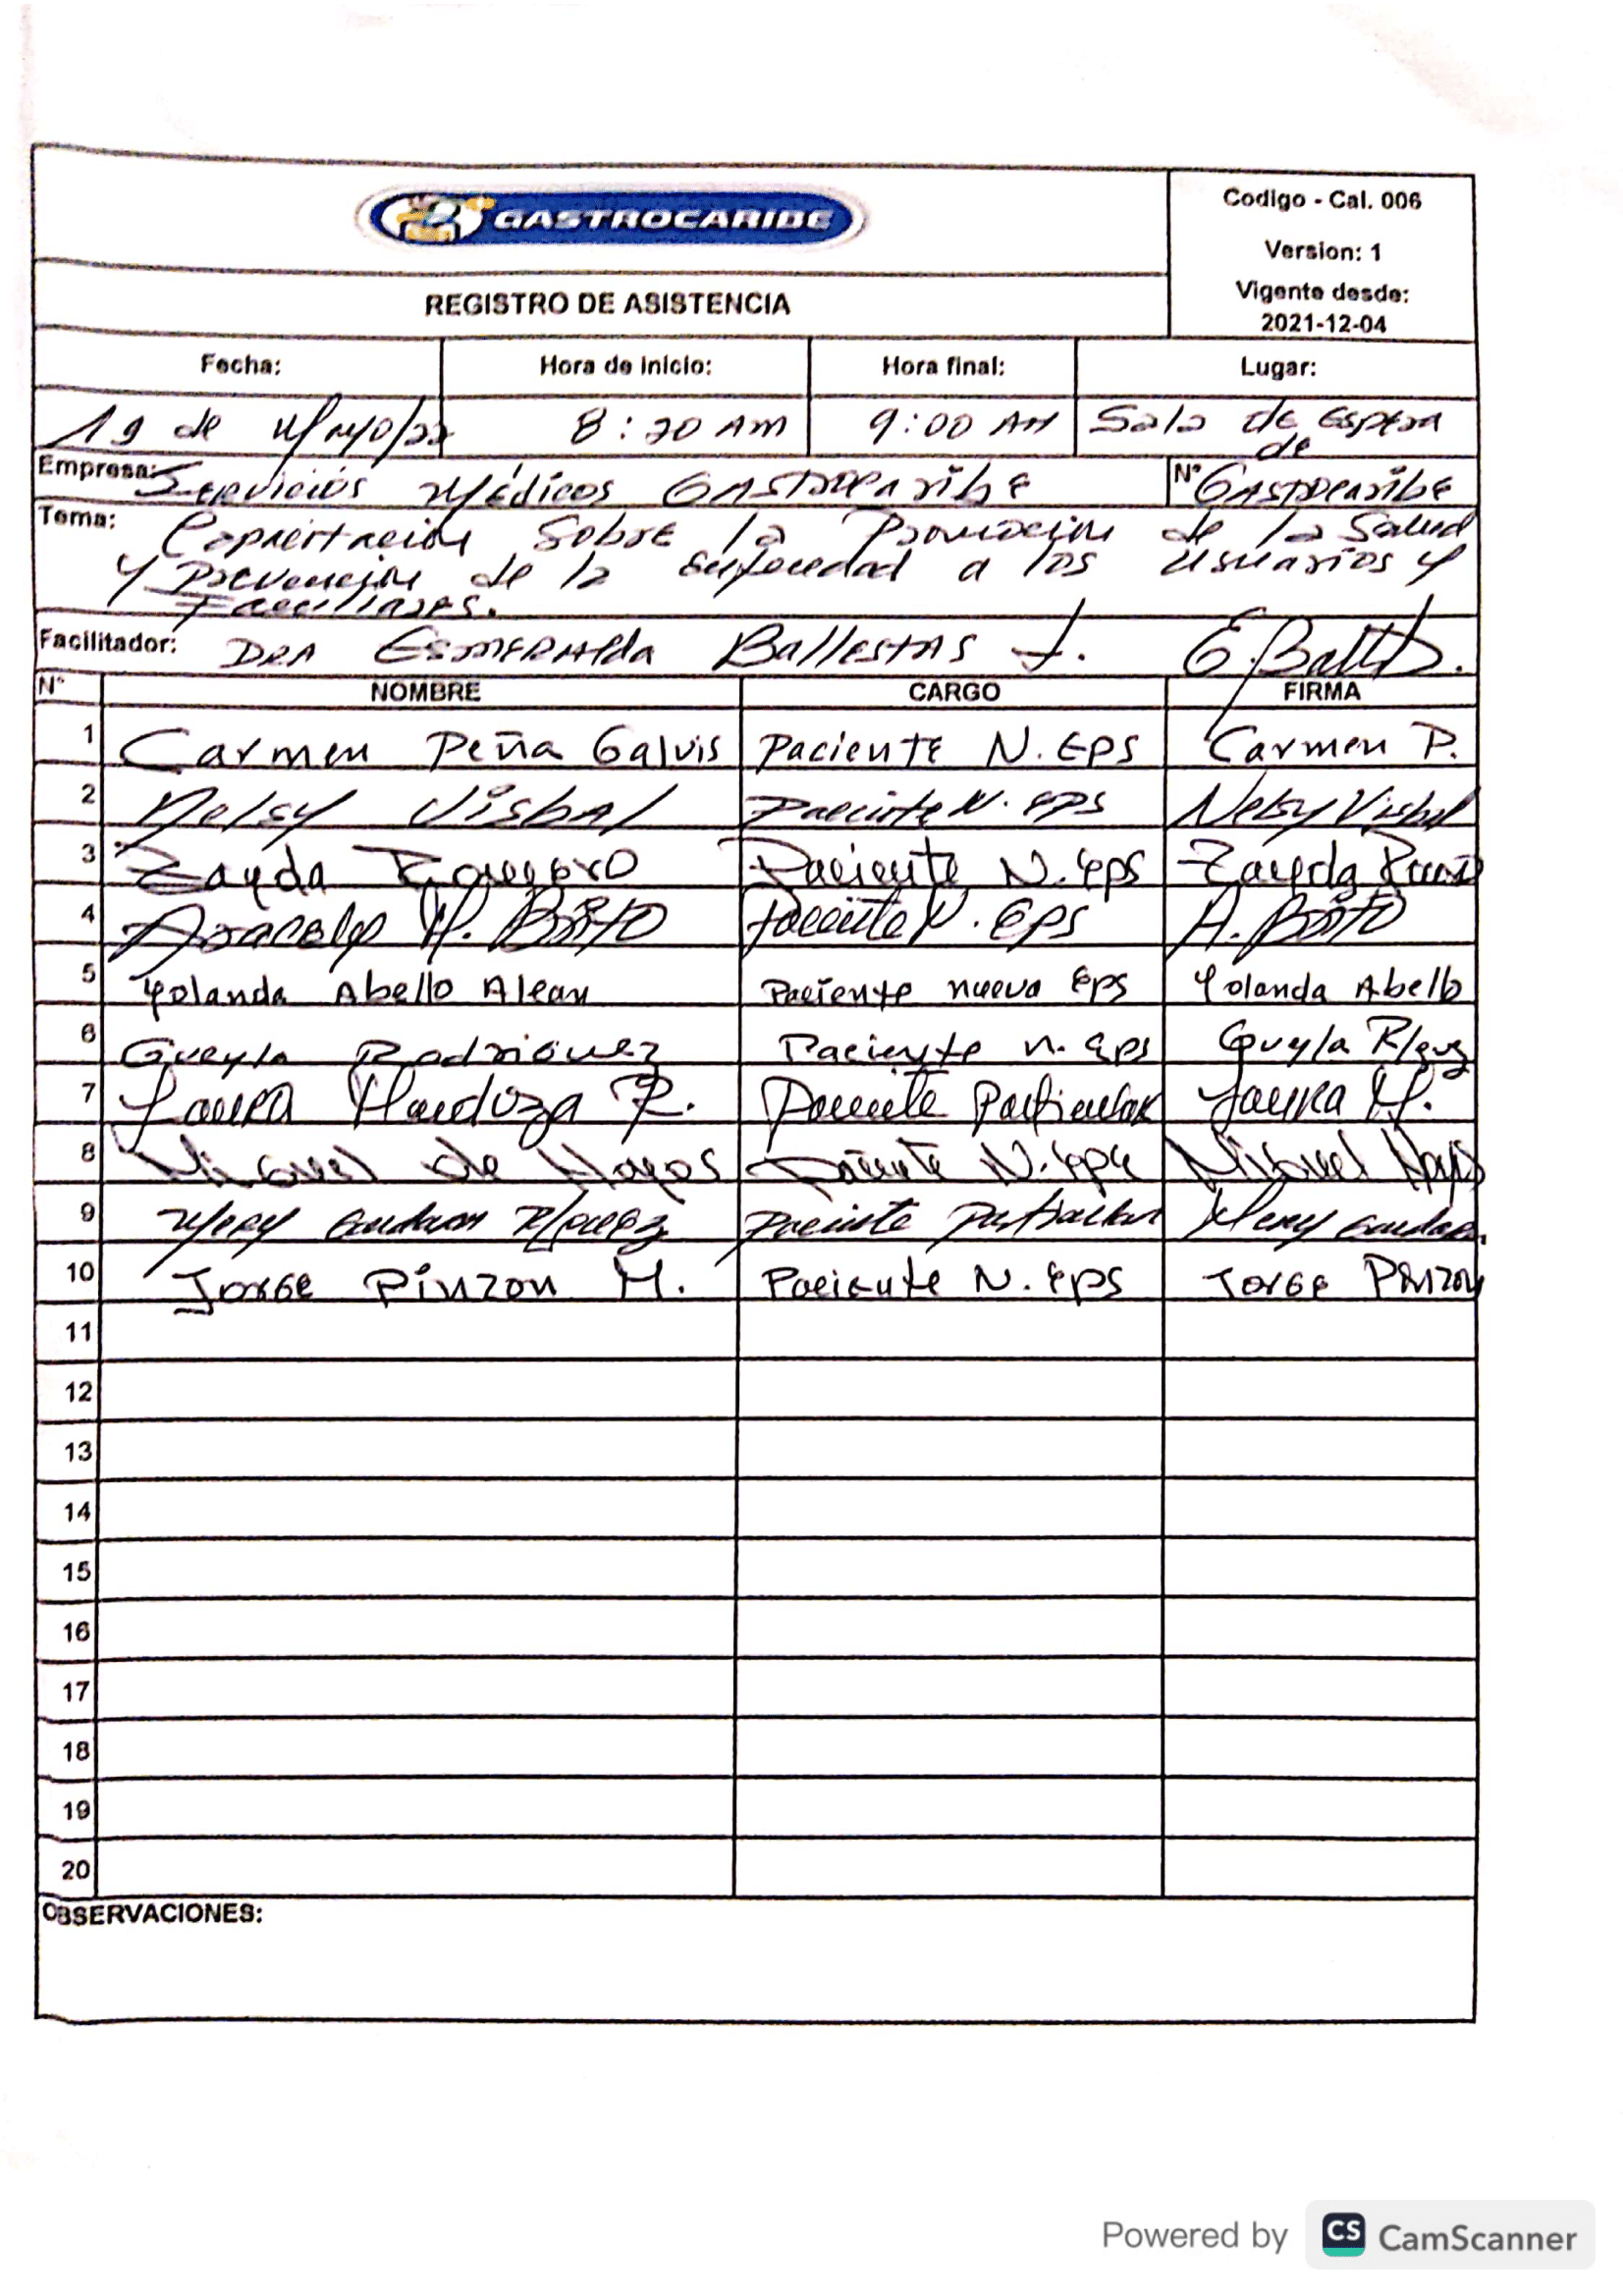 GASTROCARIBE
Codigo - Cal. 006
Version: 1
Vigente desde:
2021-12-04
REGISTRO DE ASISTENCIA
Fecha: Hora de inicio: Hora final: Lugar:
19 de Mayo/22 8:20 AM 9:00 AM Sala de Espera
de
Empresa: Servicios Médicos Gastrocaribe N° Gastrocaribe
Tema: Capacitación Sobre la Promoción de la Salud
y Prevención de la Enfermedad a los Usuarios y
Familiares.
Facilitador: DRA Esmeralda Ballestas J. E. Ballestas.
N° NOMBRE CARGO FIRMA
1 Carmen Peña Galvis Paciente N. EPS Carmen P.
2 Nelsy Visbal Paciente N. EPS Nelsy Visbal
3 Zayda Romero Paciente N. Eps Zayda
4 Aracely M. Brito Paciente N. EPS A. Brito
5 Yolanda Abello Alean Paciente nueva Eps Yolanda Abello
6 Gueyla Rodriguez Paciente N. Eps Gueyla R/guz
7 Laura Mendoza R. Paciente Particular Laura M.
8 Miguel de Hoyos Paciente N. Eps Miguel Hoyos
9 Mery Paciente Particular Mery
10 Jorge Pinzon M. Paciente N. Eps Jorge Pinzon
11
12
13
14
15
16
17
18
19
20
OBSERVACIONES:
Powered by CS CamScanner